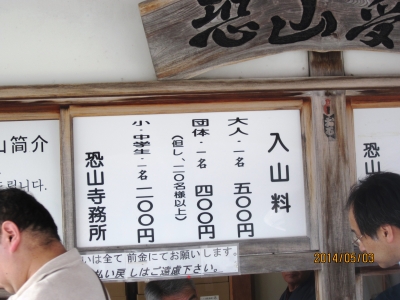 恐山
入山料
大人・一名 五〇〇円
団体・一名 四〇〇円
(但し、二〇名様以上)
小・中学生・一名 二〇〇円
恐山寺務所
いは全て 前金にてお願いします。
払い戻 しはご遠慮下さい。
山簡介
恐山
2014/05/03